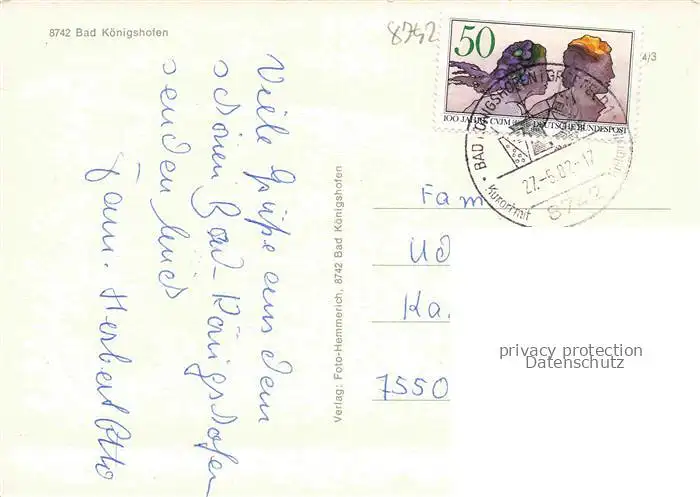 8742 Bad Königshofen
8742
50
4/3
100 JAHRE CVJM
DEUTSCHE BUNDESPOST
BAD KÖNIGSHOFEN I GRABFELD
27.-5.82-17
Kurort mit
8742
Viele Grüße aus dem
schönen Bad-Königshofen
senden Euch
Fam. Herbert Otto
Verlag: Foto-Hemmerich, 8742 Bad Königshofen
Fam
Ud
Ka.
7550
privacy protection
Datenschutz